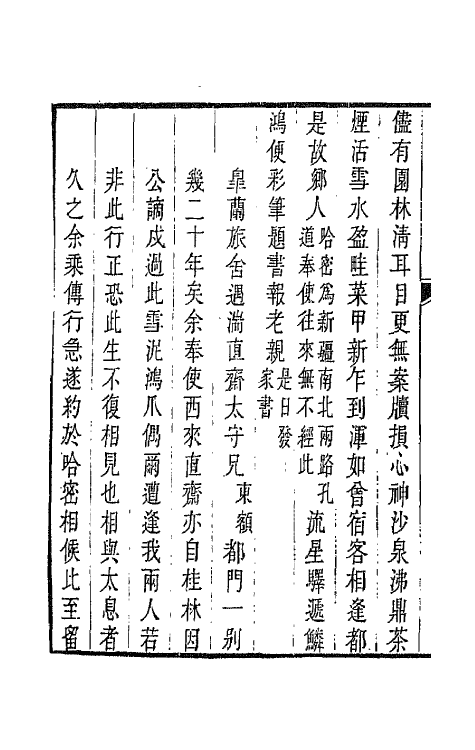 儘有園林淸耳目更無案牘損心神沙泉沸鼎茶
煙活雪水盈畦菜甲新乍到渾如曾宿客相逢都
是故鄉人哈密爲新疆南北兩路孔道奉使往來無不經此流星驛遞鱗
鴻便彩筆題書報老親是日發家書
皐蘭旅舍遇湍直齋太守兄東額都門一別
幾二十年矣余奉使西來直齋亦自桂林因
公謫戍過此雪泥鴻爪偶爾遭逢我兩人若
非此行正恐此生不復相見也相與太息者
久之余乘傳行急遂約於哈密相候此至留